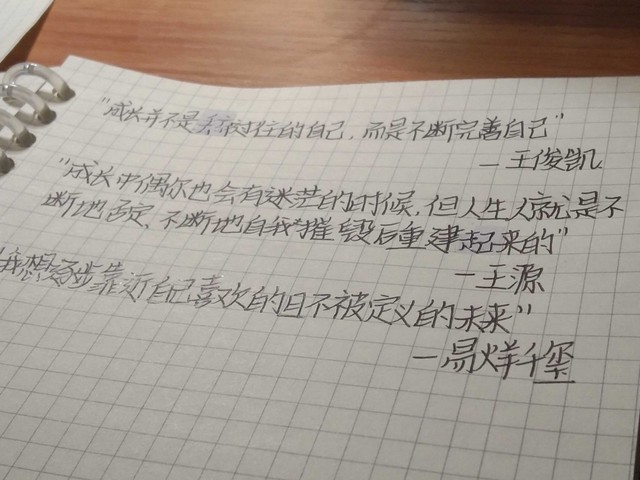 "成长并不是过往的自己，而是不断完善自己"
—王俊凯
"成长中偶尔也会有迷茫的时候，但人生人就是不
断地否定、不断地自我摧毁后重建起来的"
—王源
"我想逐步靠近自己喜欢的且不被定义的未来"
—易烊千玺